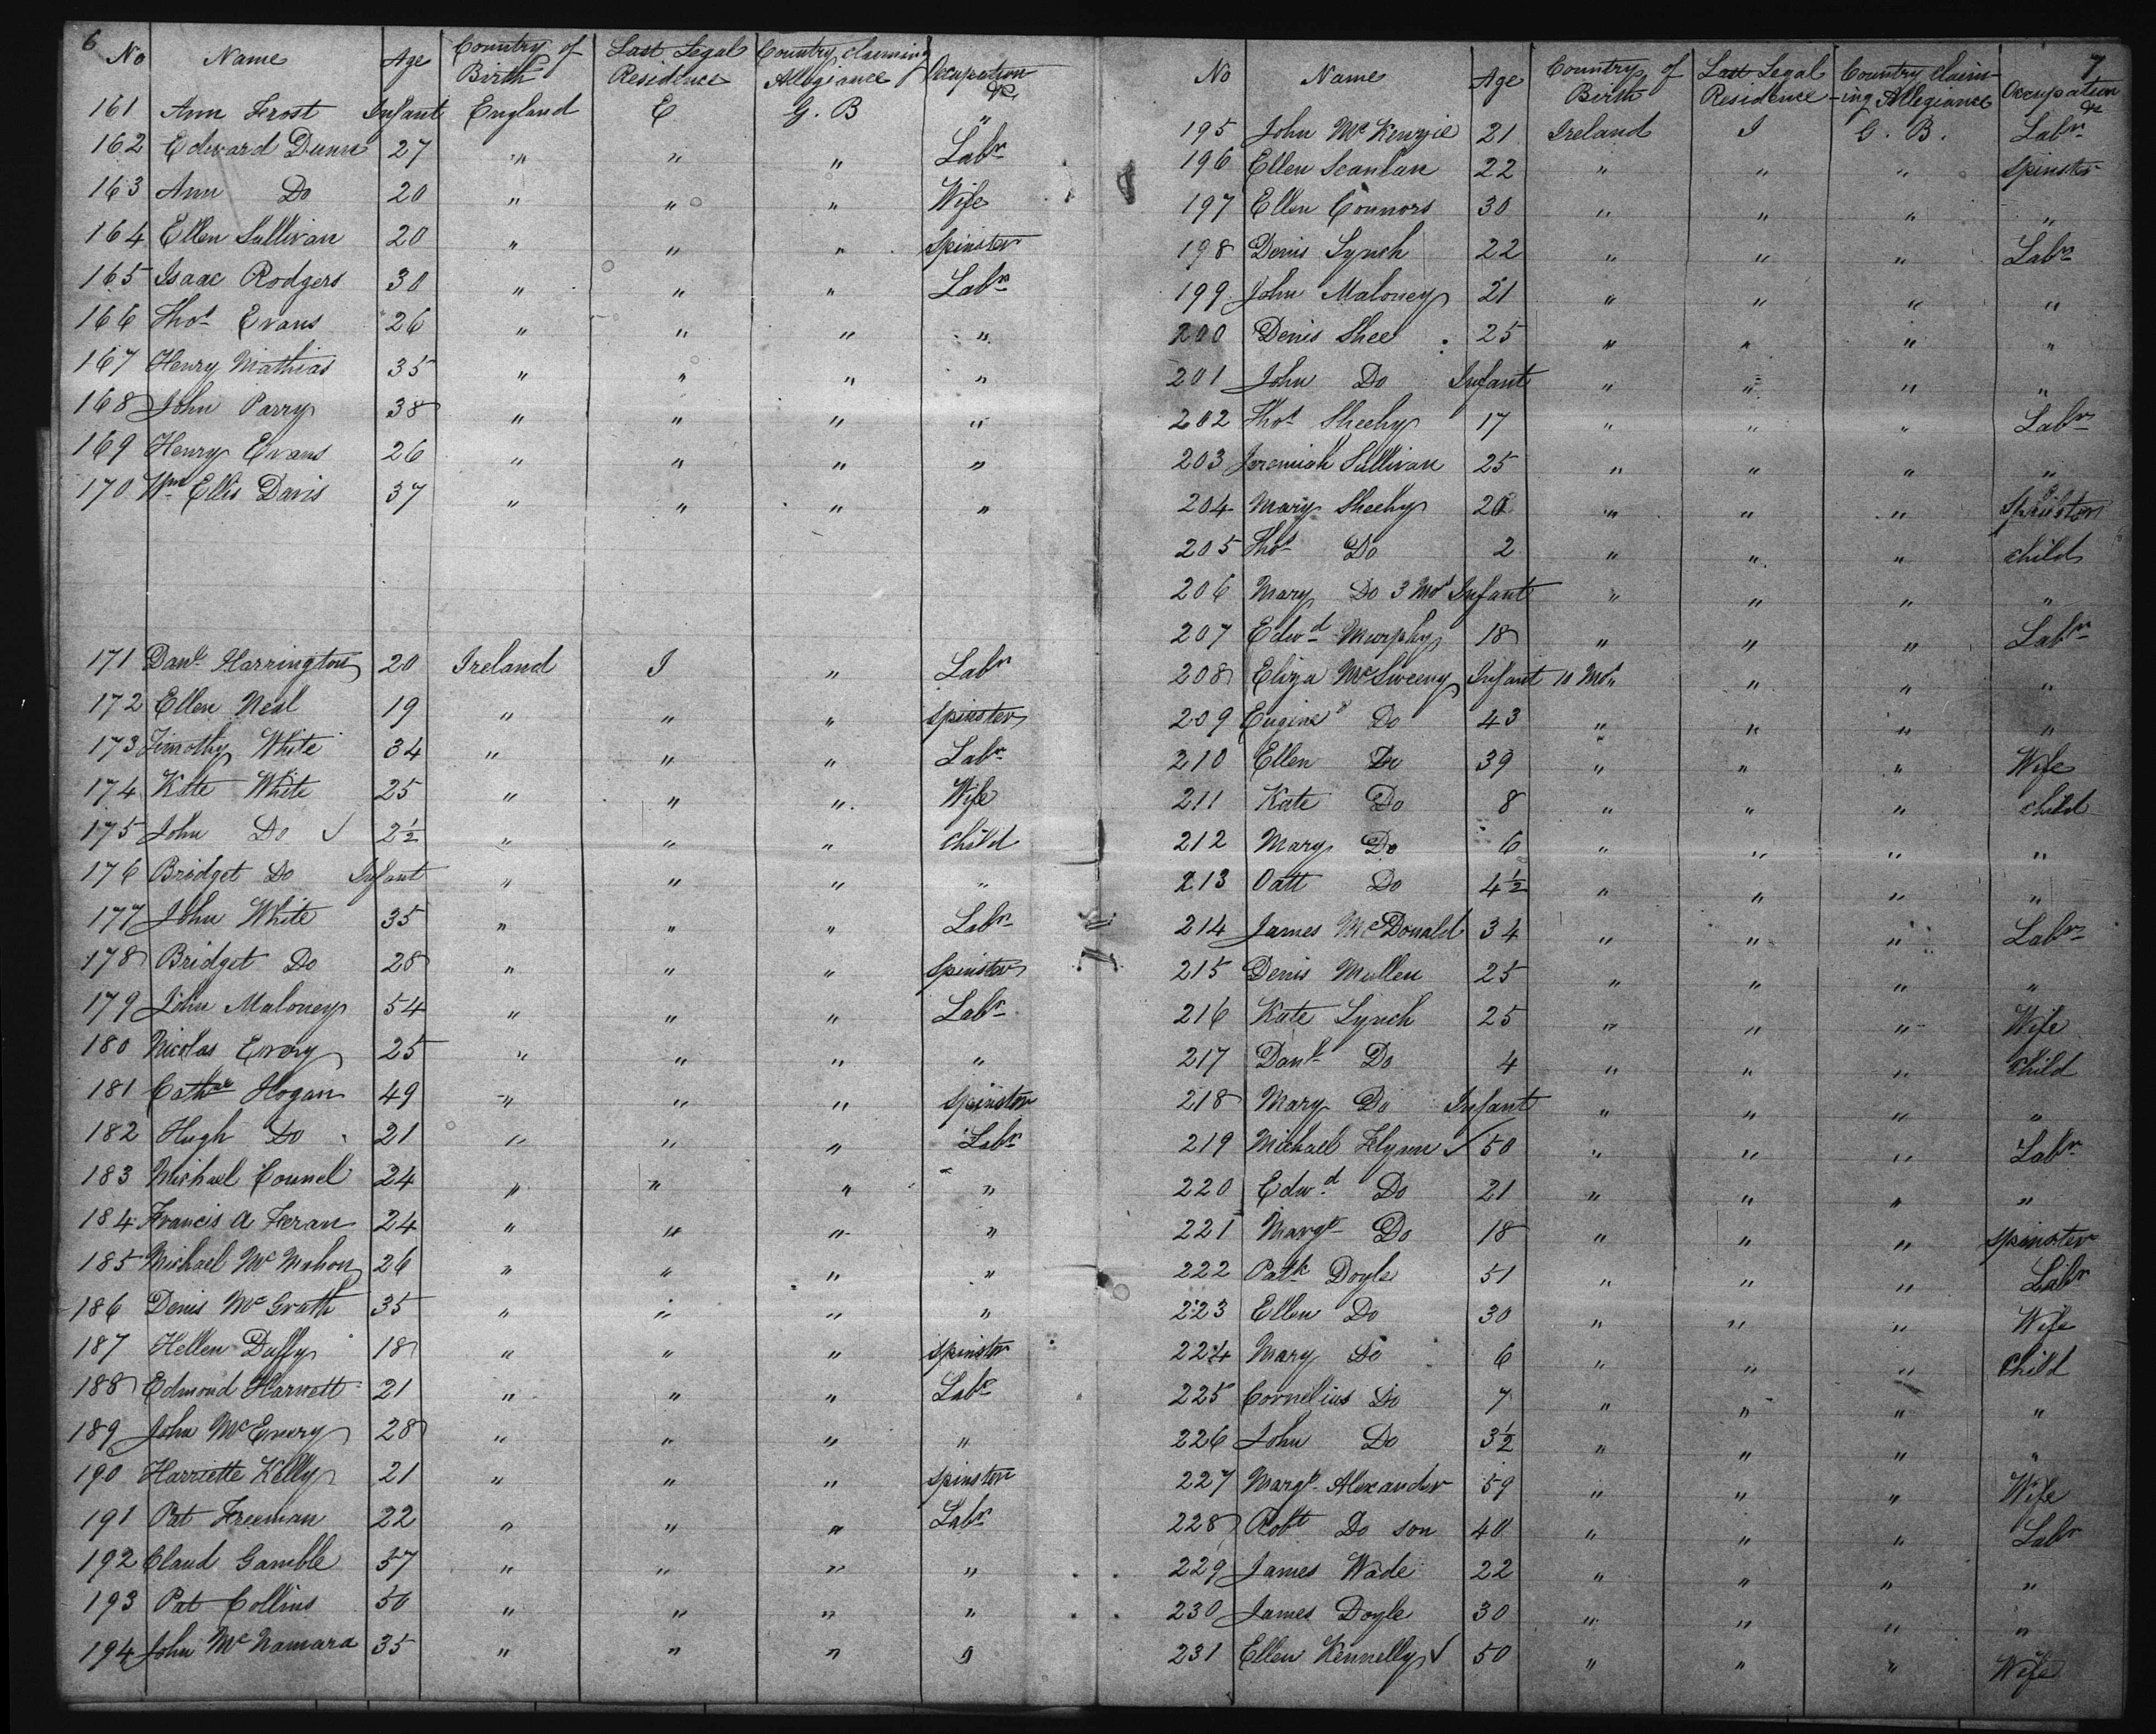 6
No Name Age Country of Birth Last Legal Residence Country claiming Allegiance Occupation &c
161 Ann Frost Infant England E G. B "
162 Edward Dunn 27 " " " Labr
163 Ann Do 20 " " " Wife
164 Ellen Sullivan 20 " " " Spinster
165 Isaac Rodgers 30 " " " Labr
166 Thos Evans 26 " " " "
167 Henry Mathias 35 " " " "
168 John Parry 38 " " " "
169 Henry Evans 26 " " " "
170 Wm Ellis Davis 37 " " " "
171 Danl Harrington 20 Ireland I " Labr
172 Ellen Neal 19 " " " Spinster
173 Timothy White 34 " " " Labr
174 Kate White 25 " " " Wife
175 John Do ✓ 2½ " " " Child
176 Bridget Do Infant " " " "
177 John White 35 " " " Labr
178 Bridget Do 28 " " " Spinster
179 John Maloney 54 " " " Labr
180 Nicolas Emery 25 " " " "
181 Cathne Hogan 49 " " " Spinster
182 Hugh Do 21 " " " Labr
183 Michael Counel 24 " " " "
184 Francis A Feran 24 " " " "
185 Michael Mc Mahon 26 " " " "
186 Denis Mc Grath 35 " " " "
187 Hellen Duffy 18 " " " Spinstr
188 Edmond Harnett 21 " " " Labr
189 John McEnery 28 " " " "
190 Harriette Kelly 21 " " " Spinster
191 Pat Freeman 22 " " " Labr
192 Claud Gamble 37 " " " "
193 Pat Collins 50 " " " "
194 John Mc Namara 35 " " " "
7
No Name Age Country of Birth Last Legal Residence Country claim-ing Allegiance Occupation &c
195 John Mc Kenzie 21 Ireland I G. B. Labr
196 Ellen Scanlan 22 " " " Spinstr
197 Ellen Connors 30 " " " "
198 Denis Lynch 22 " " " Labr
199 John Maloney 21 " " " "
200 Denis Shee 25 " " " "
201 John Do Infant " " " "
202 Thos Sheehy 17 " " " Labr
203 Jeremiah Sullivan 25 " " " "
204 Mary Sheehy 20 " " " Spinster
205 Thos Do 2 " " " Child
206 Mary Do 3 Mos Infant " " " "
207 Edwd Murphy 18 " " " Labr
208 Eliza McSweeny Infant 10 Mos " " " "
209 Eugine Do 43 " " " "
210 Ellen Do 39 " " " Wife
211 Kate Do 8 " " " Child
212 Mary Do 6 " " " "
213 Patt Do 4½ " " " "
214 James McDonald 34 " " " Labr
215 Denis Mullen 25 " " " "
216 Kate Lynch 25 " " " Wife
217 Danl Do 4 " " " Child
218 Mary Do Infant " " " "
219 Michael Flynn ✓ 50 " " " Labr
220 Edwd Do 21 " " " "
221 Margt Do 18 " " " Spinster
222 Patk Doyle 51 " " " Labr
223 Ellen Do 30 " " " Wife
224 Mary Do 6 " " " Child
225 Cornelius Do 7 " " " "
226 John Do 3½ " " " "
227 Margt Alexander 59 " " " Wife
228 Robt Do son 40 " " " Labr
229 James Wade 22 " " " "
230 James Doyle 30 " " " "
231 Ellen Kennelly ✓ 50 " " " Wife